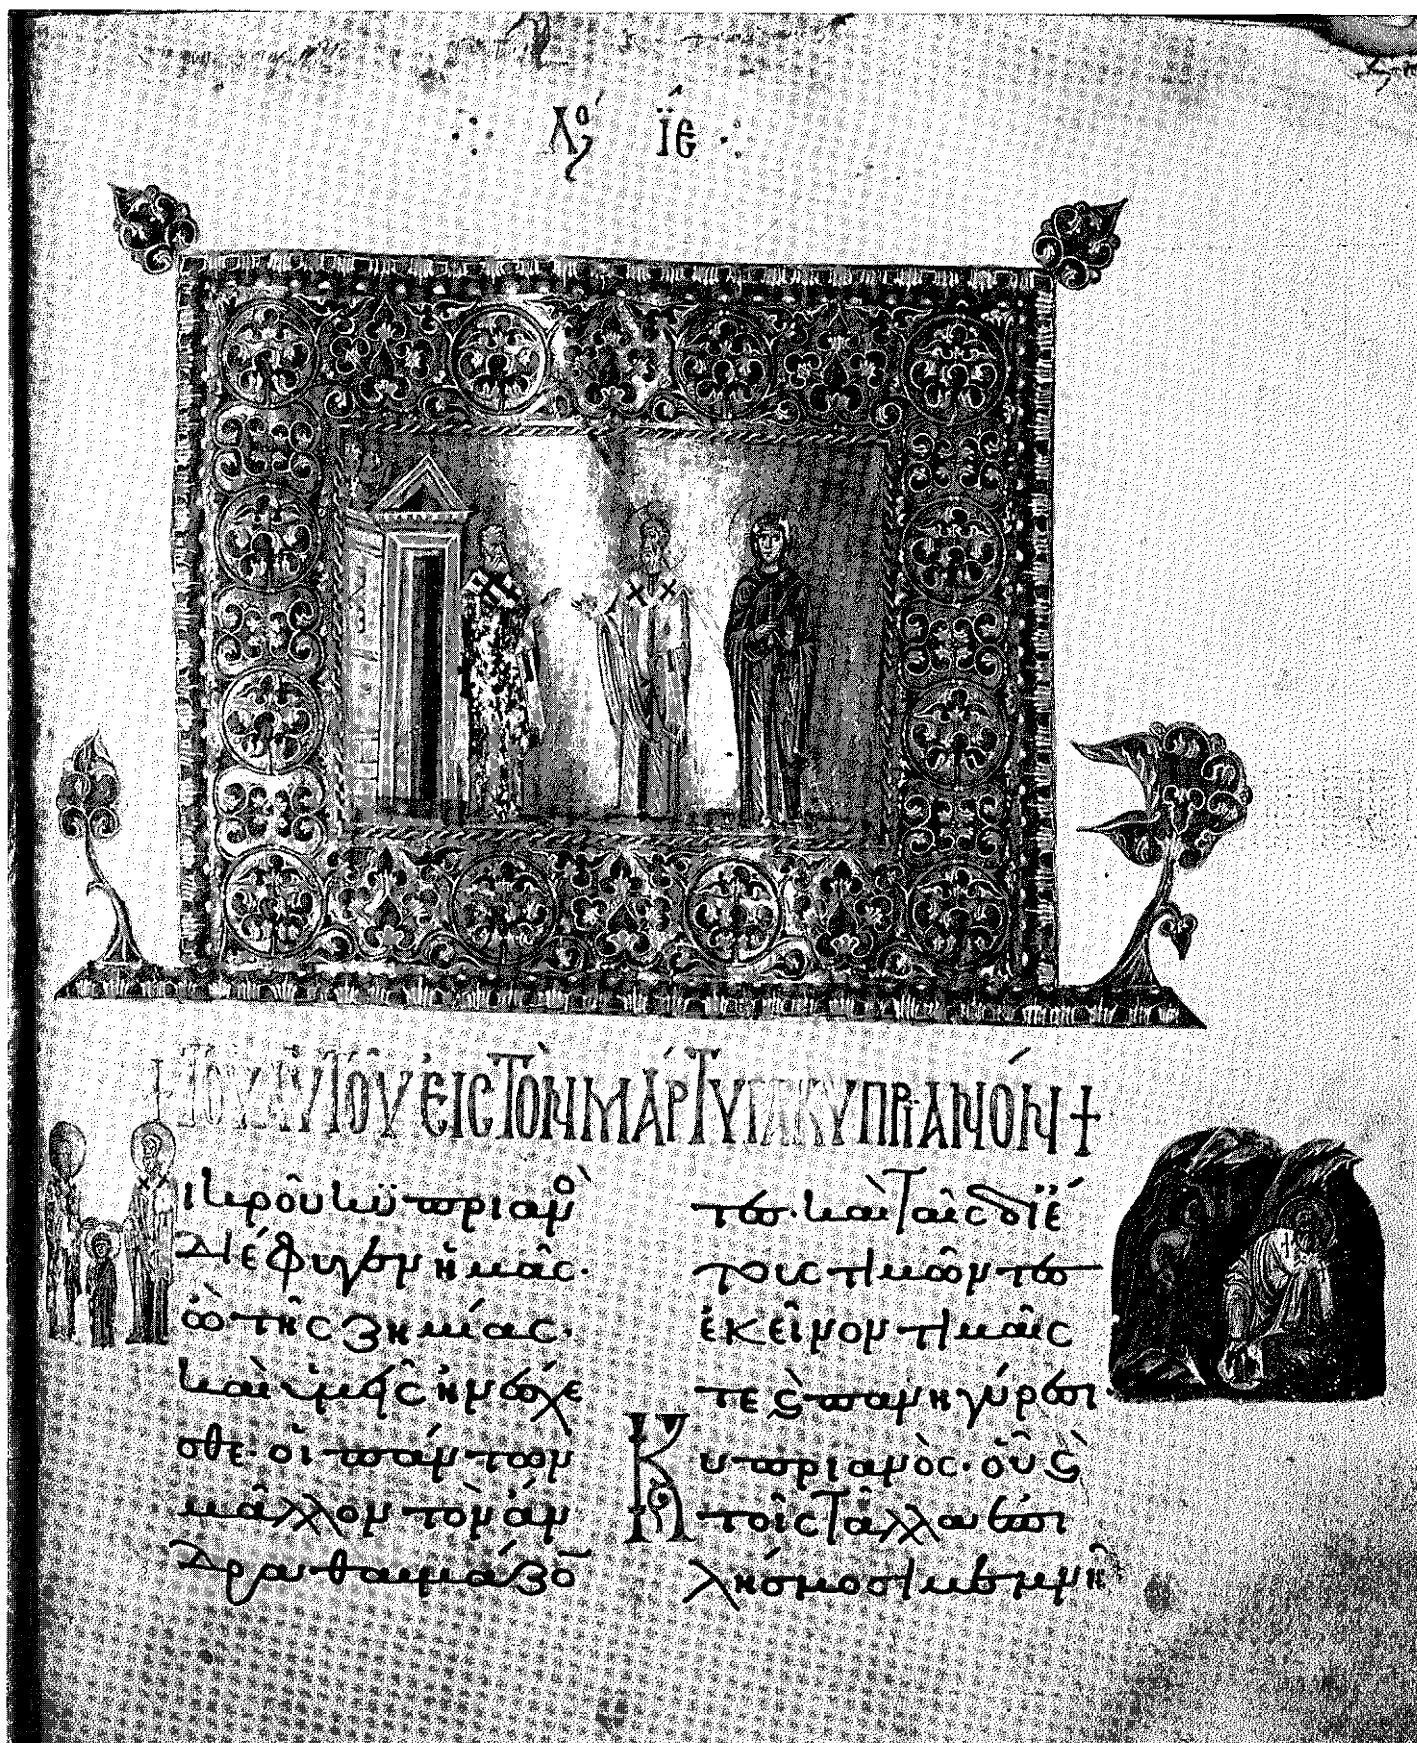 Λό ϊέ
† ΤΟΥ ΑΥΤΟΥ ΕἸС ΤῸΝ ΜΆΡΤΥΡΑ ΚΥΠΡΙΑΝΌΝ †
ικροῦ κϋπριανὸ
διέφυγεν ἡμᾶς·
ὢ τῆς ζημίας·
καὶ ὑμεῖς ἠνέσχε
σθε· οἱ πάντων
μᾶλλον τὸν ἄν
δρα θαυμάζο
τες· καὶ ταῖς διἔ
τους τιμῶντες
ἐκεῖνον τιμαῖς
τε ϗ πανηγύρεσι·
Κυπριανὸς· οὗ ϗ
τοῖς τἄλλα ἐπι
λήσμοσι μεμνῆ